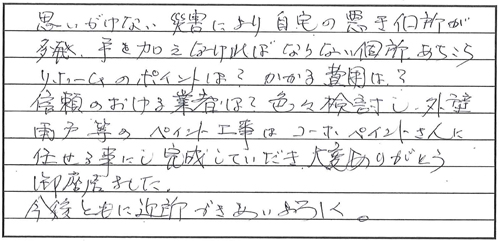 思いがけない災害により自宅の悪き個所が
多発、手を加えなければならない個所あちこち
リホームのポイントは？かかる費用は？
信頼のおける業者は？色々検討し、外壁
雨戸等のペイント工事はコーホペイントさんに
任せる事にし完成していただき大変ありがとう
御座居ました。
今後ともに近所づきあいよろしく。